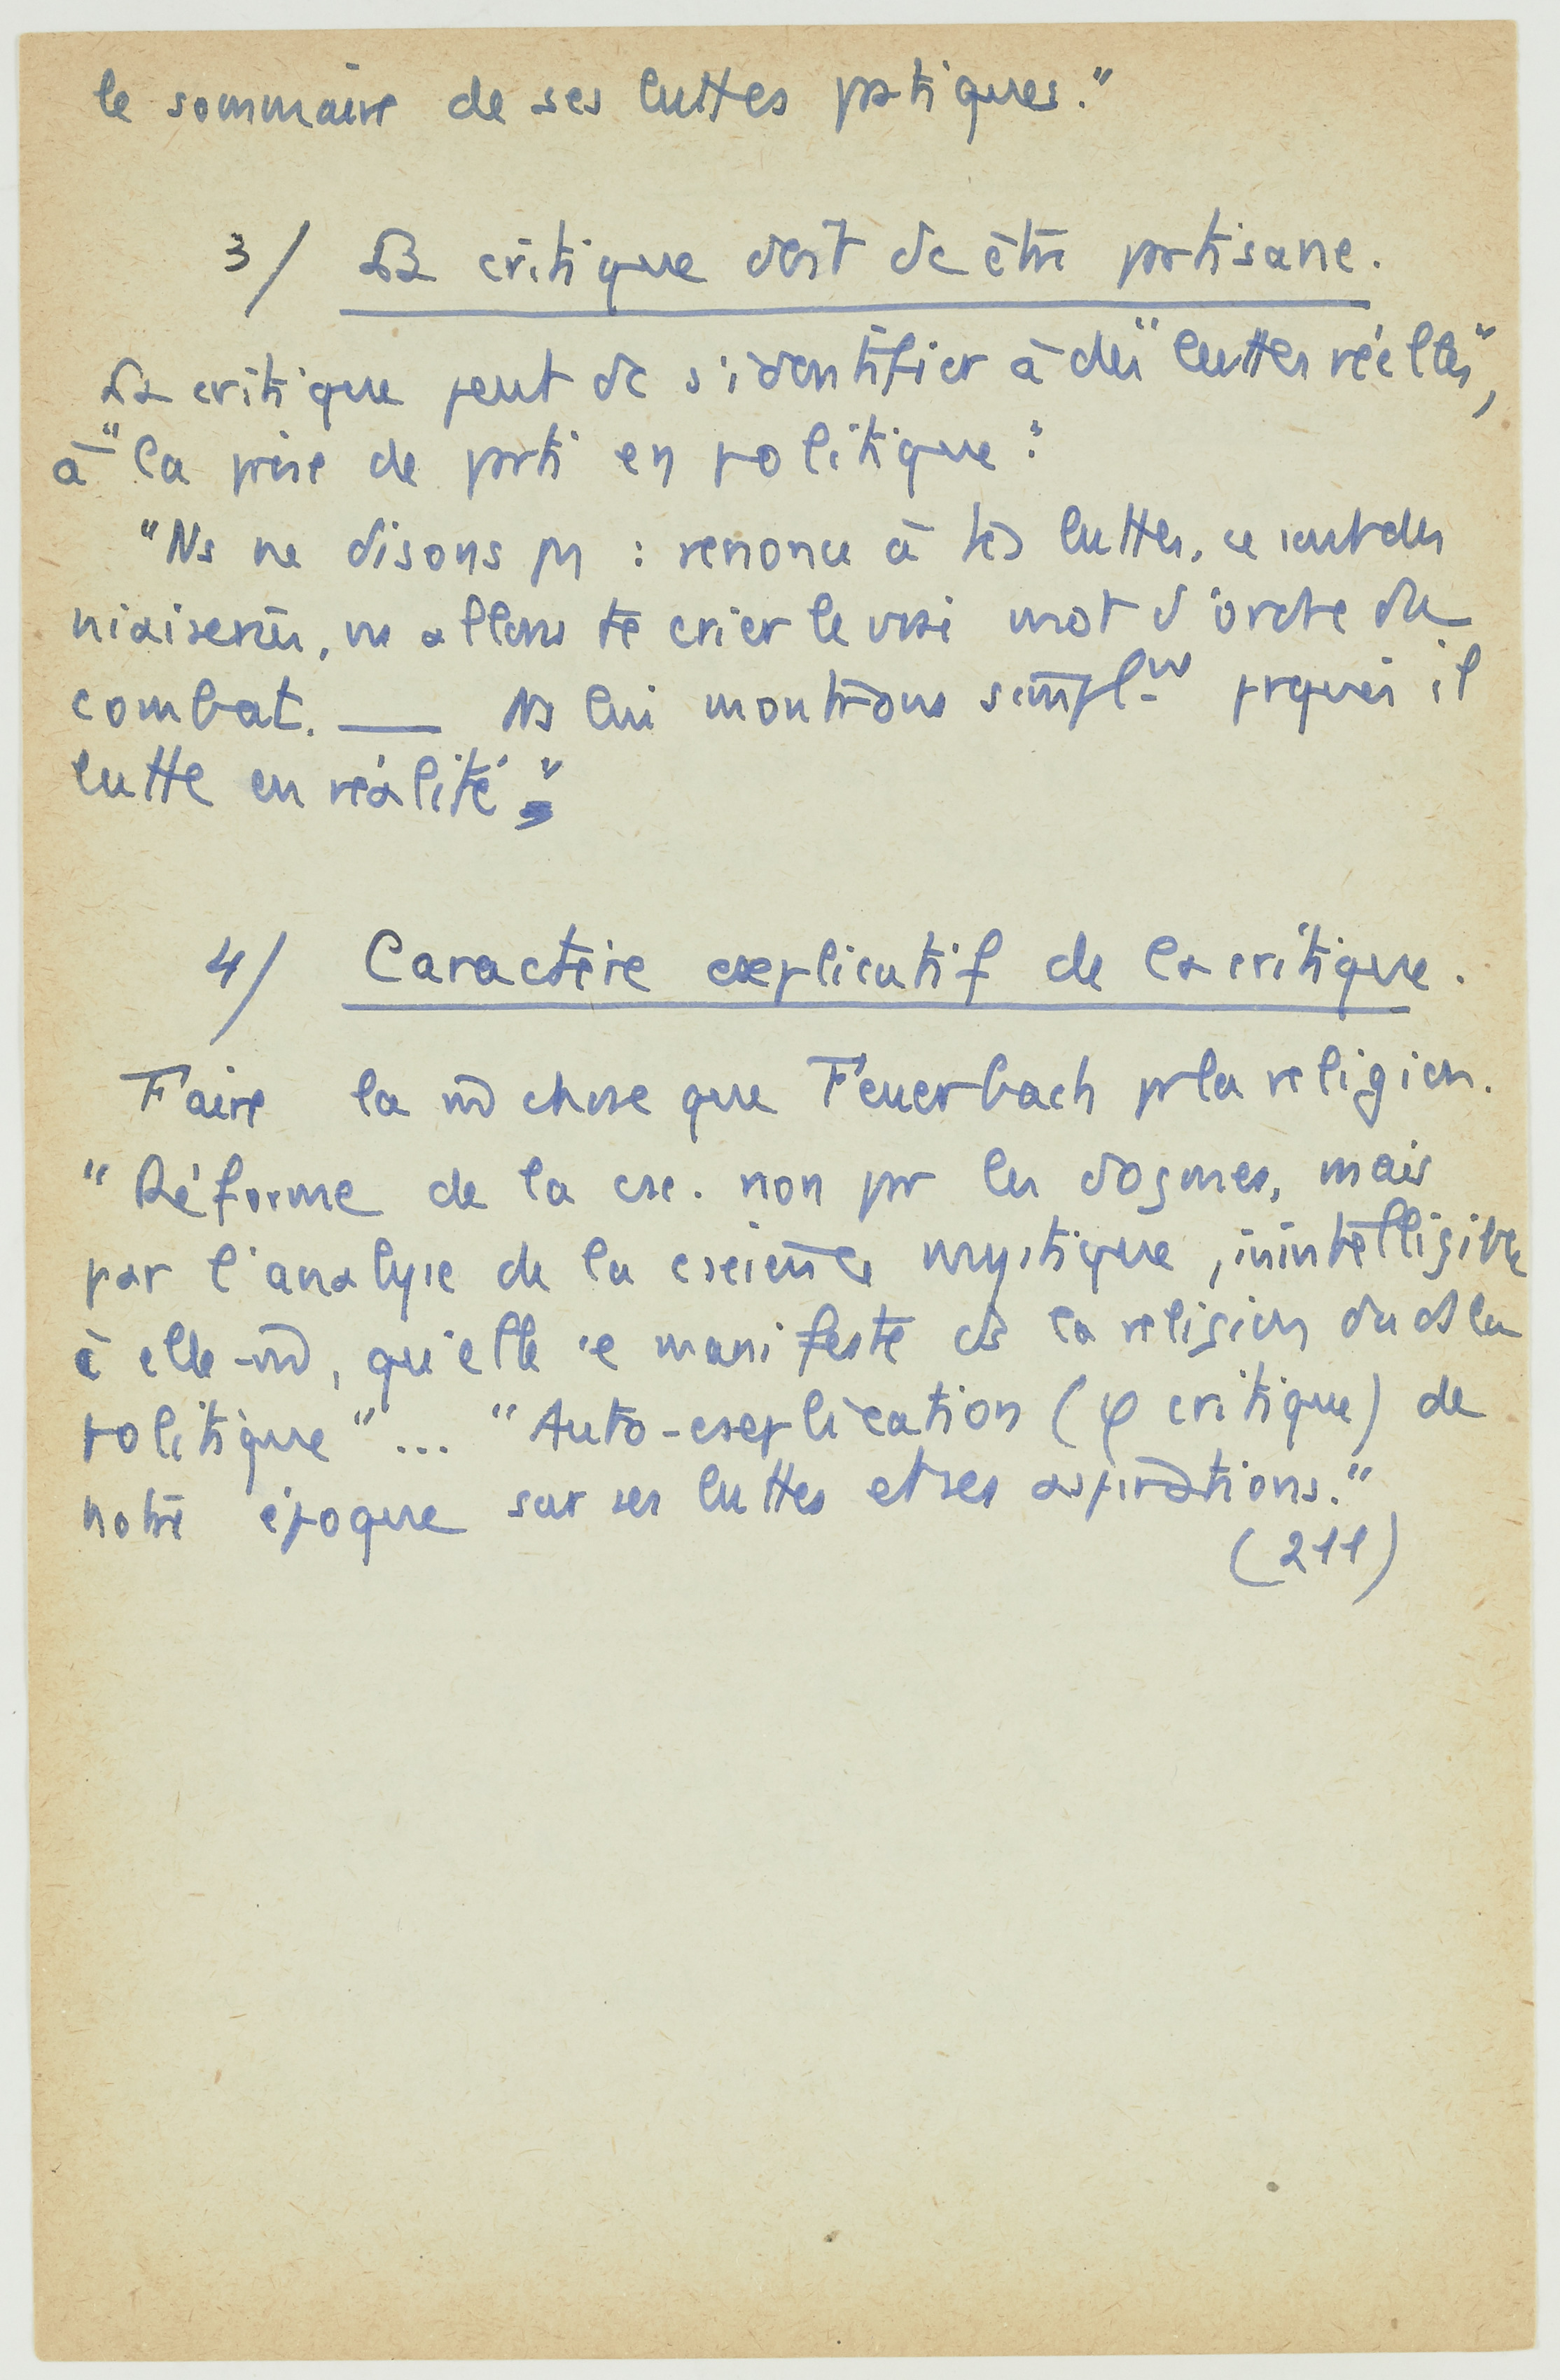 le sommaire de ses luttes pratiques."
3/ La critique doit dc être partisane.
La critique peut dc s'identifier à des "luttes réelles",
à "la prise de parti en politique":
"Ns ne disons pas : renonce à tes luttes, ce sont des
niaiseries, ns allons te crier le vrai mot d'ordre du
combat. — Ns lui montrons simplt prquoi il
lutte en réalité."
4/ Caractère explicatif de la critique.
Faire la m̂ chose que Feuerbach pr la religion.
"Réforme de la csc. non par les dogmes, mais
par l'analyse de la cscience mystique, inintelligible
à elle-m̂, qu'elle se manifeste ds la religion ou ds la
politique"... "Auto-explication (φ critique) de
notre époque sur ses luttes et ses aspirations."
(211)